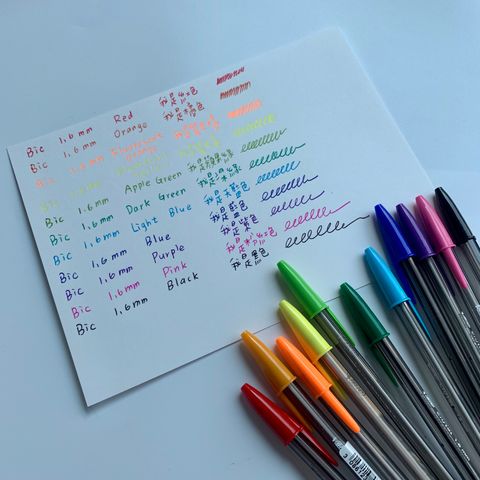 Bic 1.6mm Red 我是紅色
Bic 1.6mm Orange 我是橘色
Bic 1.6mm Fluorescent Orange
Bic 1.6mm
Bic 1.6mm Apple Green 我是蘋果綠
Bic 1.6mm Dark Green 我是
Bic 1.6mm Light Blue 我是
Bic 1.6mm Blue 我是藍
Bic 1.6mm Purple 我是紫色
Bic 1.6mm Pink 我是粉紅色
Bic 1.6mm Black 我是黑色